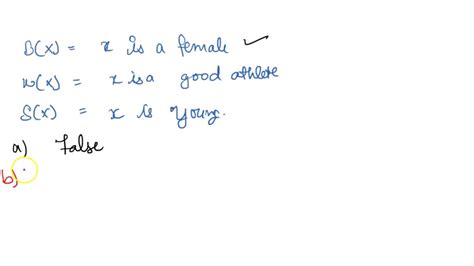 B(x) = x is a female ✓
w(x) = x is a good athlete
S(x) = x is Young.
a) False
b)